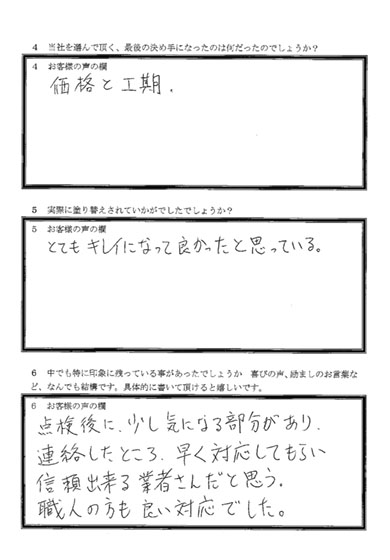 4 当社を選んで頂く、最後の決め手になったのは何だったのでしょうか?
4 お客様の声の欄
価格と工期.
5 実際に塗り替えされていかがでしたでしょうか?
5 お客様の声の欄
とてもキレイになって良かったと思っている。
6 中でも特に印象に残っている事があったでしょうか 喜びの声、励ましのお言葉な
ど、なんでも結構です。具体的に書いて頂けると嬉しいです。
6 お客様の声の欄
点検後に、少し気になる部分があり、
連絡したところ、早く対応してもらい
信頼出来る業者さんだと思う。
職人の方も良い対応でした。